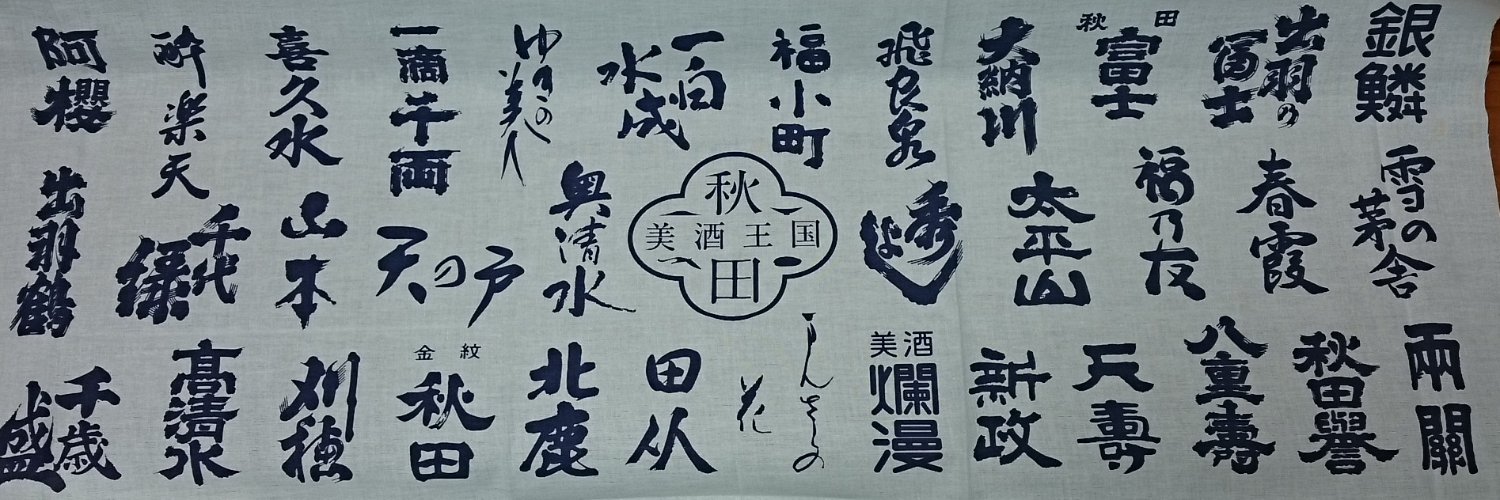 銀鱗
出羽の
冨士
秋田
富士
大納川
飛良泉
福小町
一白
水成
ゆきの美人
一滴千両
喜久水
酔楽天
阿櫻
雪の
茅舎
春霞
福乃友
太平山
秀よし
秋田
美酒王国
奥清水
天の戸
山本
千代
緑
出羽鶴
兩關
秋田譽
八重壽
天壽
新政
美酒
爛漫
まんさくの
花
田从
北鹿
金紋
秋田
刈穂
髙清水
千歳
盛